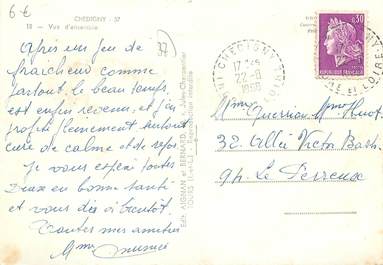 6€
CHÉDIGNY - 37
18 - Vue d'ensemble
37
Après un peu de
fraicheur comme
partout, le beau temps
est enfin revenu, et j'en
profite pleinement surtout
cure de calme et de repos
Je vous espère toutes
Deux en bonne santé
et vous dis à bientôt.
Toutes mes amitiés
Mme
Edit. AIGNAN et BERNARD, 84, rue Jules-Charpentier
TOURS (I.-et-L.) - Reproduction interdite
CHEDIGNY
17 H
22-8
1968
INDRE ET LOIRE
0,30
REPUBLIQUE FRANÇAISE
Mme Guerrion Mme Huot
32 Allée Victor Bach
94. Le Perreux